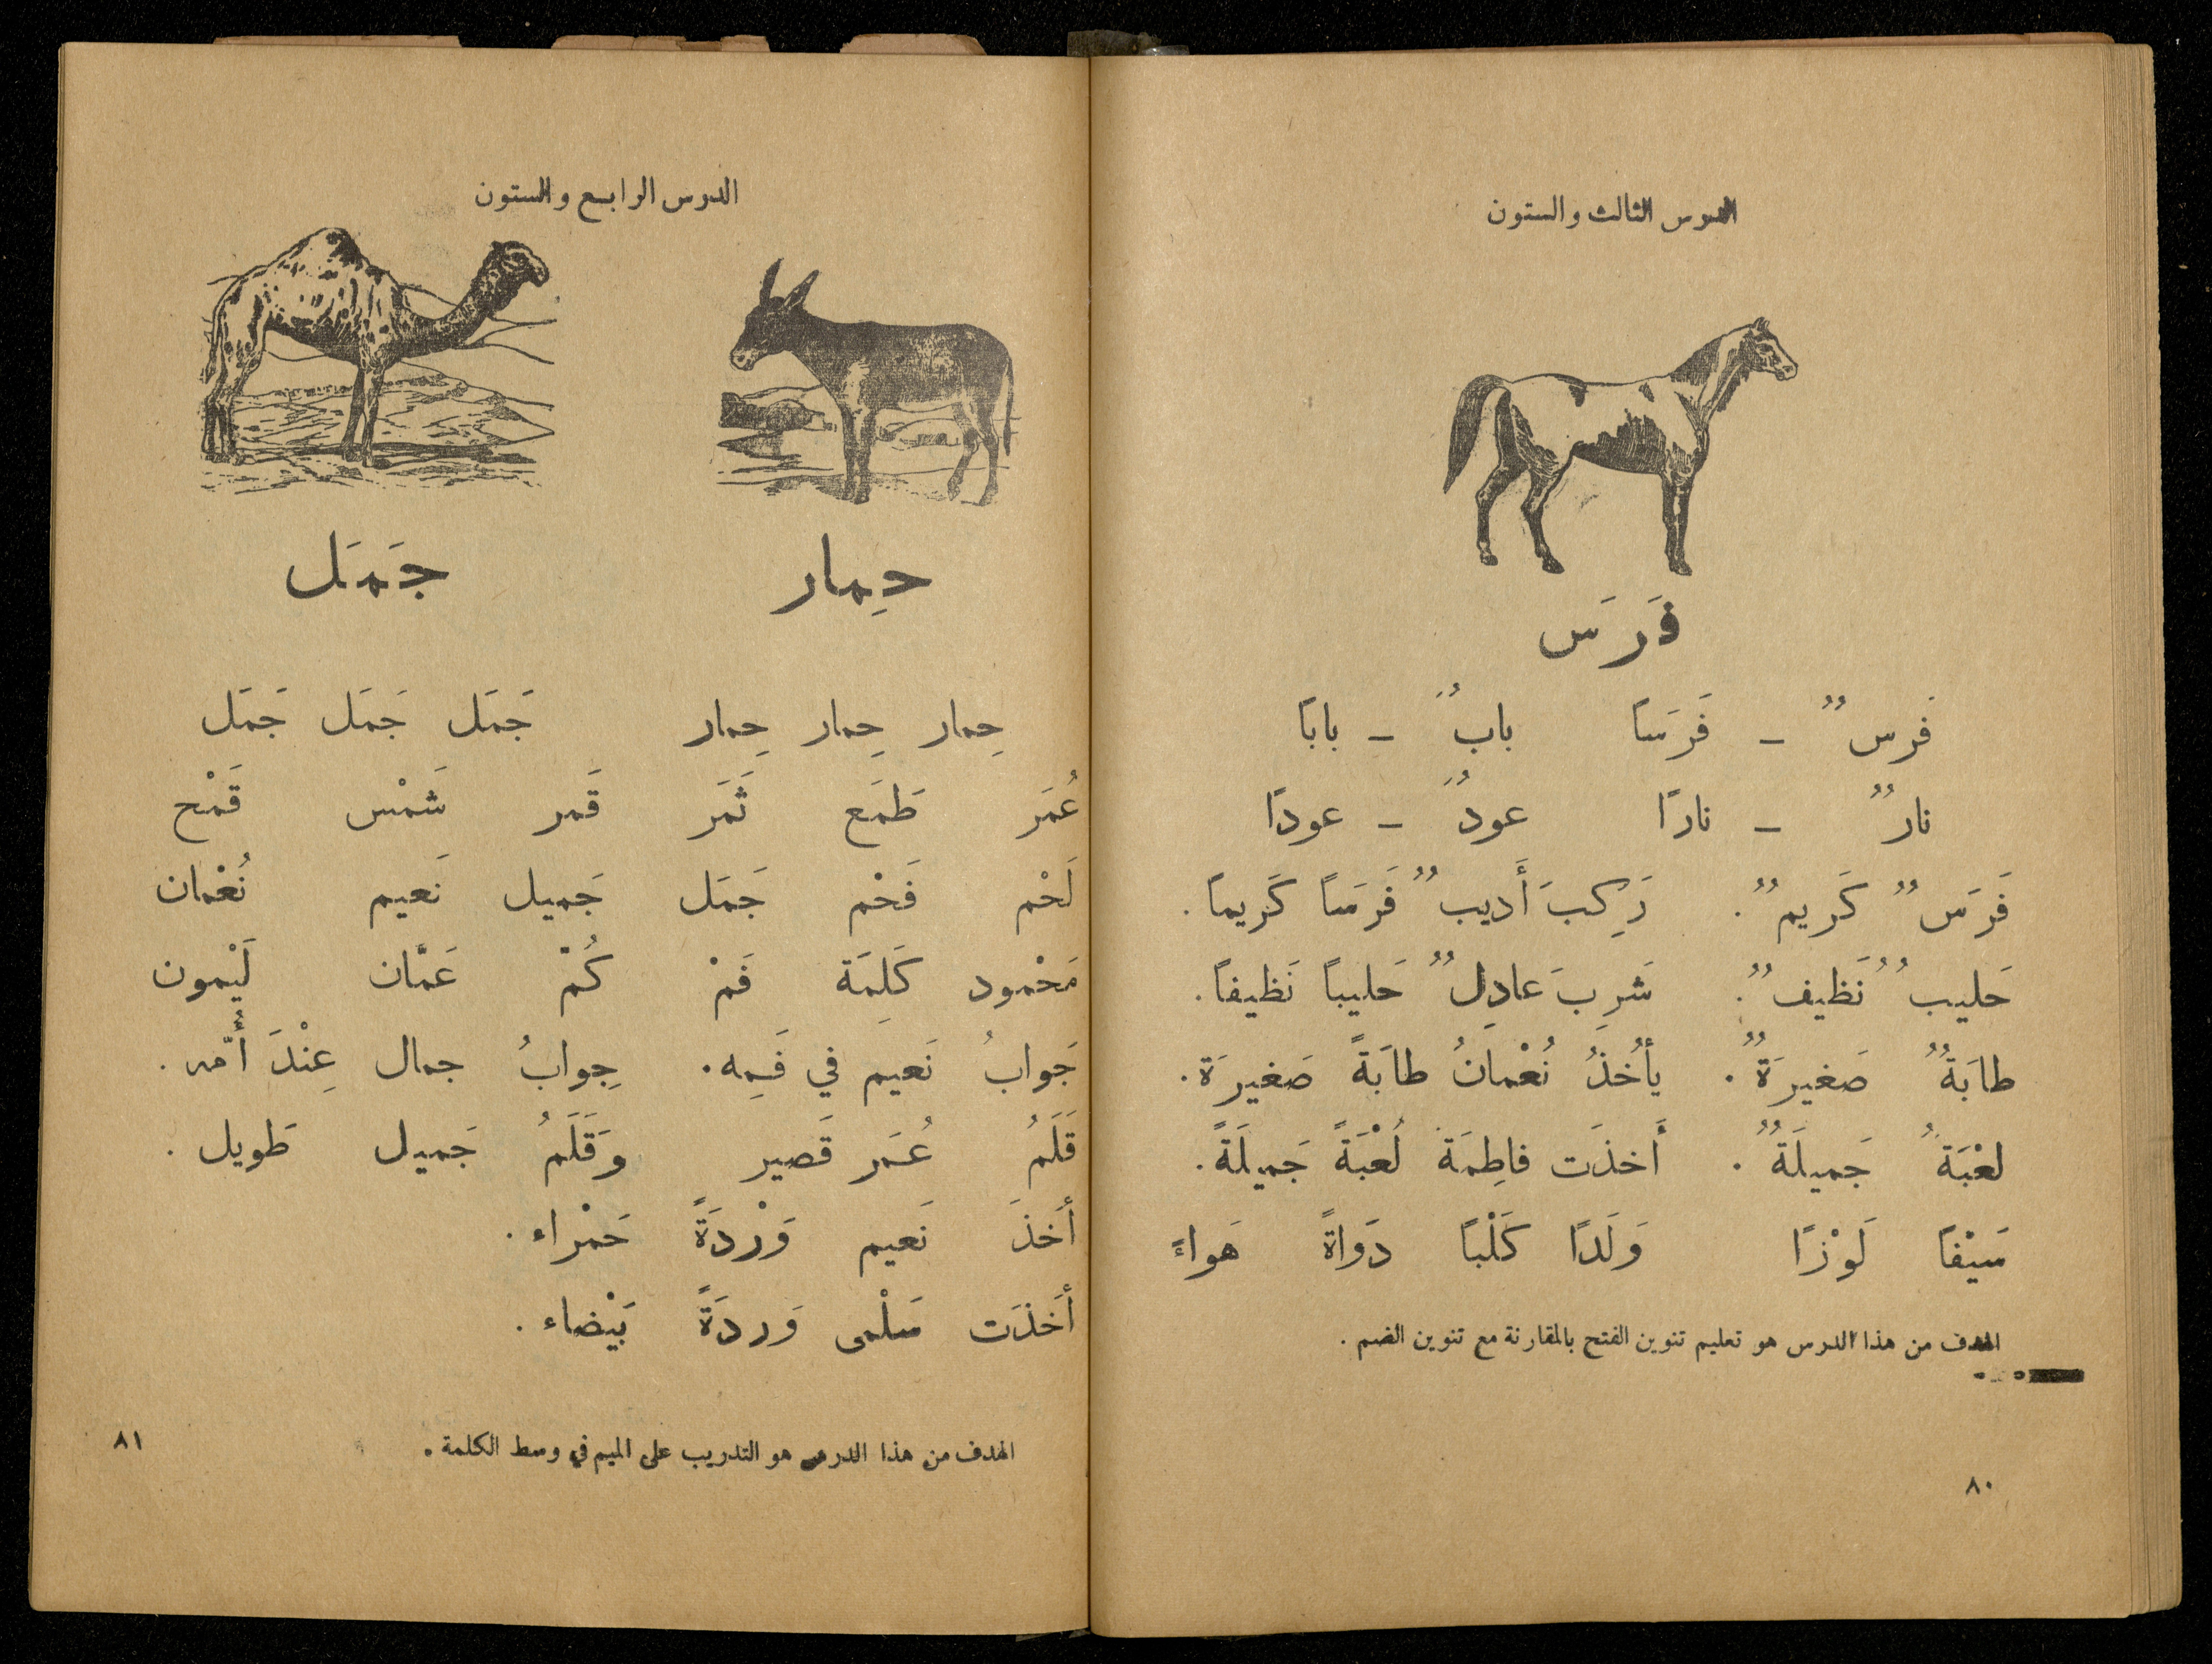 الدرس الثالث والستون
فَرَس
فَرسٌ – فَرَسًا بابٌ – بابًا
نارٌ – نارًا عودٌ – عودًا
فَرَسٌ كَريمٌ. رَكِبَ أَديبٌ فَرَسًا كَريمًا.
حَليبٌ نَظيفٌ. شَرِبَ عادِلٌ حَليبًا نَظيفًا.
طابَةٌ صَغيرَةٌ. يأخُذُ نُعْمانُ طابَةً صَغيرَة.
لعْبَةٌ جَميلَةٌ. أَخذَت فاطِمَة لُعْبَةً جَميلَةً.
سَيْفًا لَوْزًا وَلَدًا كَلْبًا دَواةً هَواءً
الهدف من هذا الدرس هو تعليم تنوين الفتح بالمقارنة مع تنوين الضم.
٨٠
الدرس الرابع والستون
حِمار جَمَل
حِمار حِمار حِمار جَمَل جَمَل جَمَل
عُمَر طَمَع ثَمَر قَمر شَمْس قَمْح
لَحْم فَحْم جَمَل جَميل نَعيم نُعْمان
مَحْمود كَلِمَة فَمْ كُمْ عَمّان لَيْمون
جَوابُ نَعيم في فَمِه. جِوابُ جمال عِنْدَ أُمّه.
قَلَمُ عُمَر قَصير وَقَلَمُ جَميل طَويل.
أَخَذَ نَعيم وَرْدَةً حَمْراء.
أَخَذَت سَلْمى وَردَةً بَيْضاء.
الهدف من هذا الدرس هو التدريب على الميم في وسط الكلمة.
٨١